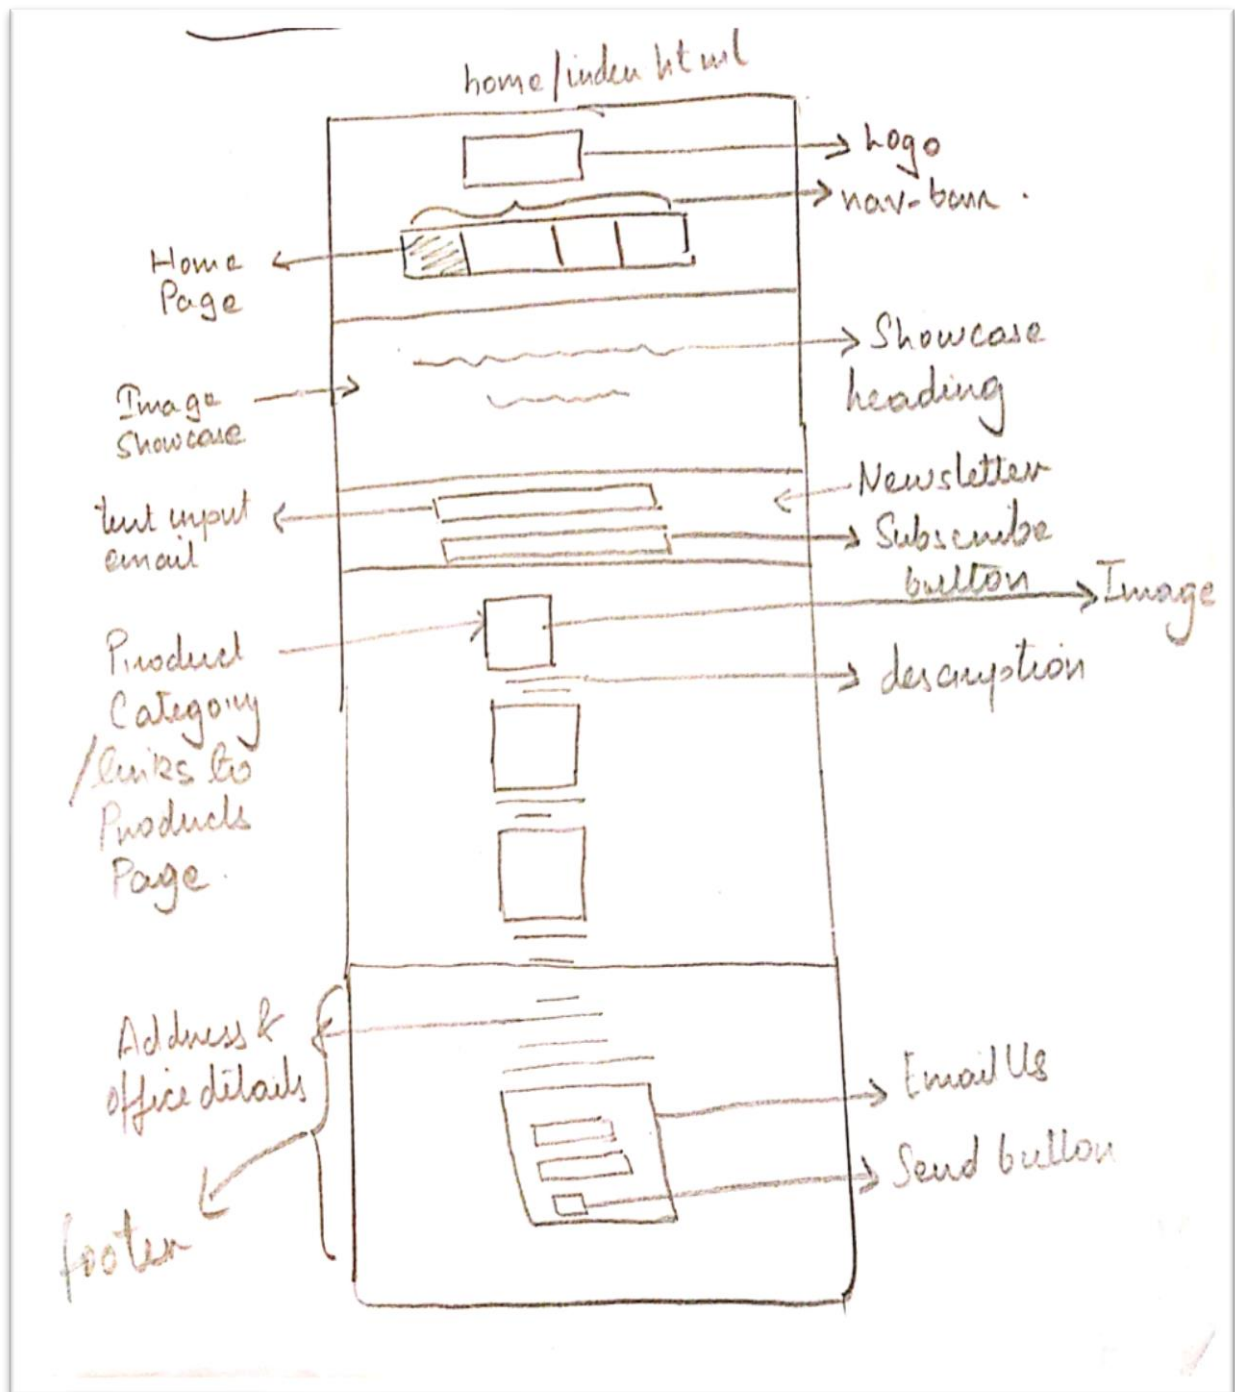 home/index html
Logo
nav-barr.
Home
Page
Showcase
heading
Image
Showcase
Newsletter
text input
email
Subscribe
button
Image
Product
Category
/links to
Products
Page.
description
Address &
office details
Email Us
Send button
footer